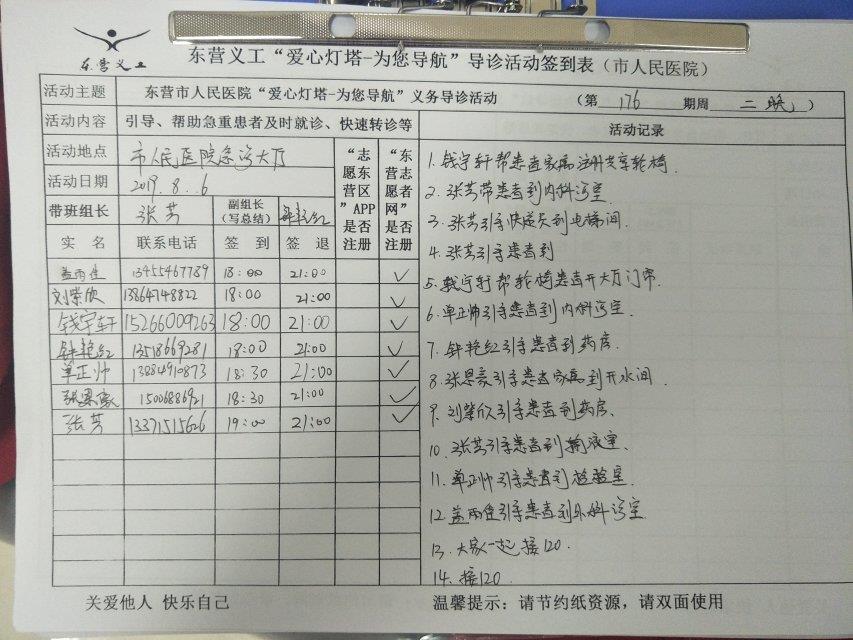 东营义工
东营义工“爱心灯塔-为您导航”导诊活动签到表（市人民医院）
活动主题 东营市人民医院“爱心灯塔-为您导航”义务导诊活动 （第 176 期周 二晚 ）
活动内容 引导、帮助急重患者及时就诊、快速转诊等
活动地点 市人民医院急诊大厅
活动日期 2019.8..6
带班组长 张芳 副组长（写总结） 钟艳红
“志愿东营区”APP是否注册
“东营志愿者网”是否注册
实名 联系电话 签到 签退
盖雨佳 13455467789 18:00 21:00 ✓
刘紫欣 13864748822 18:00 21:00 ✓
钱宇轩 15266009263 18:00 21:00 ✓
钟艳红 13518669281 18:00 21:00 ✓
单正帅 13884910873 18:30 21:00 ✓
张恩豪 15006886921 18:30 21:00 ✓
张芳 13371515626 19:00 21:00 ✓
活动记录
1. 钱宇轩帮患者家属注册共享轮椅.
2. 张芳带患者到内科诊室.
3. 张芳引导快递员到电梯间.
4. 张芳引导患者到
5. 钱宇轩帮轮椅患者开大厅门帘.
6. 单正帅引导患者到内科诊室.
7. 钟艳红引导患者到药房.
8. 张恩豪引导患者家属到开水间.
9. 刘紫欣引导患者到药房.
10. 张芳引导患者到输液室.
11. 单正帅引导患者到检验室.
12. 盖雨佳引导患者到外科诊室
13. 大家一起接120.
14. 接120.
关爱他人 快乐自己
温馨提示：请节约纸资源，请双面使用